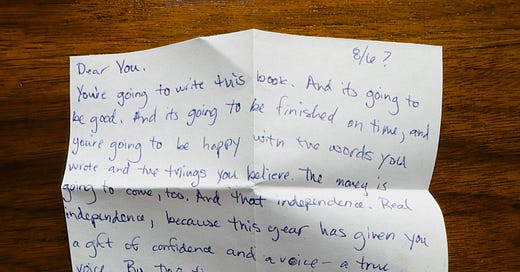 8/6 ?
Dear You.
You're going to write this book. And its going to
be good. And its going to be finished on time, and
you're going to be happy with the words you
wrote and the things you believe. The money is
going to come, too. And that independence. Real
independence, because this year has given you
a gift of confidence and a voice – a true
voice. By the